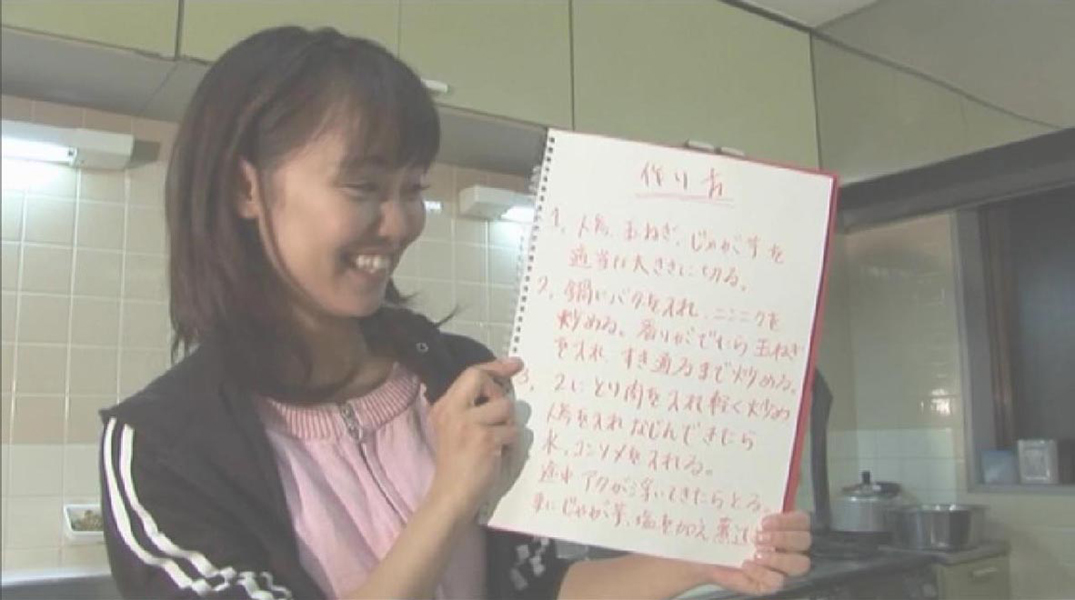 作り方
1. 人参、玉ねぎ、じゃが芋を
適当な大きさに切る。
2. 鍋にバタを入れ、ニンニクを
炒める。香りがでたら玉ねぎ
を入れ すき通るまで炒める。
3. 2にとり肉を入れ軽く炒め
人参を入れなじんできたら
水、コンソメを入れる。
途中アクが浮いてきたらとる。
更にじゃが芋、塩を加え煮込